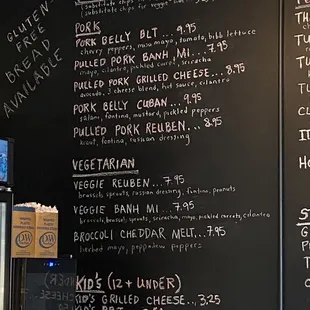 (substitute chips for veggie
GLUTEN
FREE
BREAD
AVAILABLE
PORK
PORK BELLY BLT ... 9.95
cherry peppers, masa mayo, tomato, bibb lettuce
PULLED PORK BANH MI ... 7.95
mayo, cilantro, pickled carrot, sriracha
PULLED PORK GRILLED CHEESE ... 8.95
avocado, 2 cheese blend, hot sauce, cilantro
PORK BELLY CUBAN ... 9.95
salami, fontina, mustard, pickled peppers
PULLED PORK REUBEN ... 8.95
kraut, fontina, russian dressing
VEGETARIAN
VEGGIE REUBEN ... 7.95
brussels sprouts, russian dressing, fontina, peanuts
VEGGIE BANH MI ... 7.95
broccoli, brussels sprouts, sriracha, mayo, pickled carrots, cilantro
BROCCOLI CHEDDAR MELT ... 7.95
herbed mayo, peppadew peppers
KID'S (12 + UNDER)
KID'S GRILLED CHEESE ... 3.25